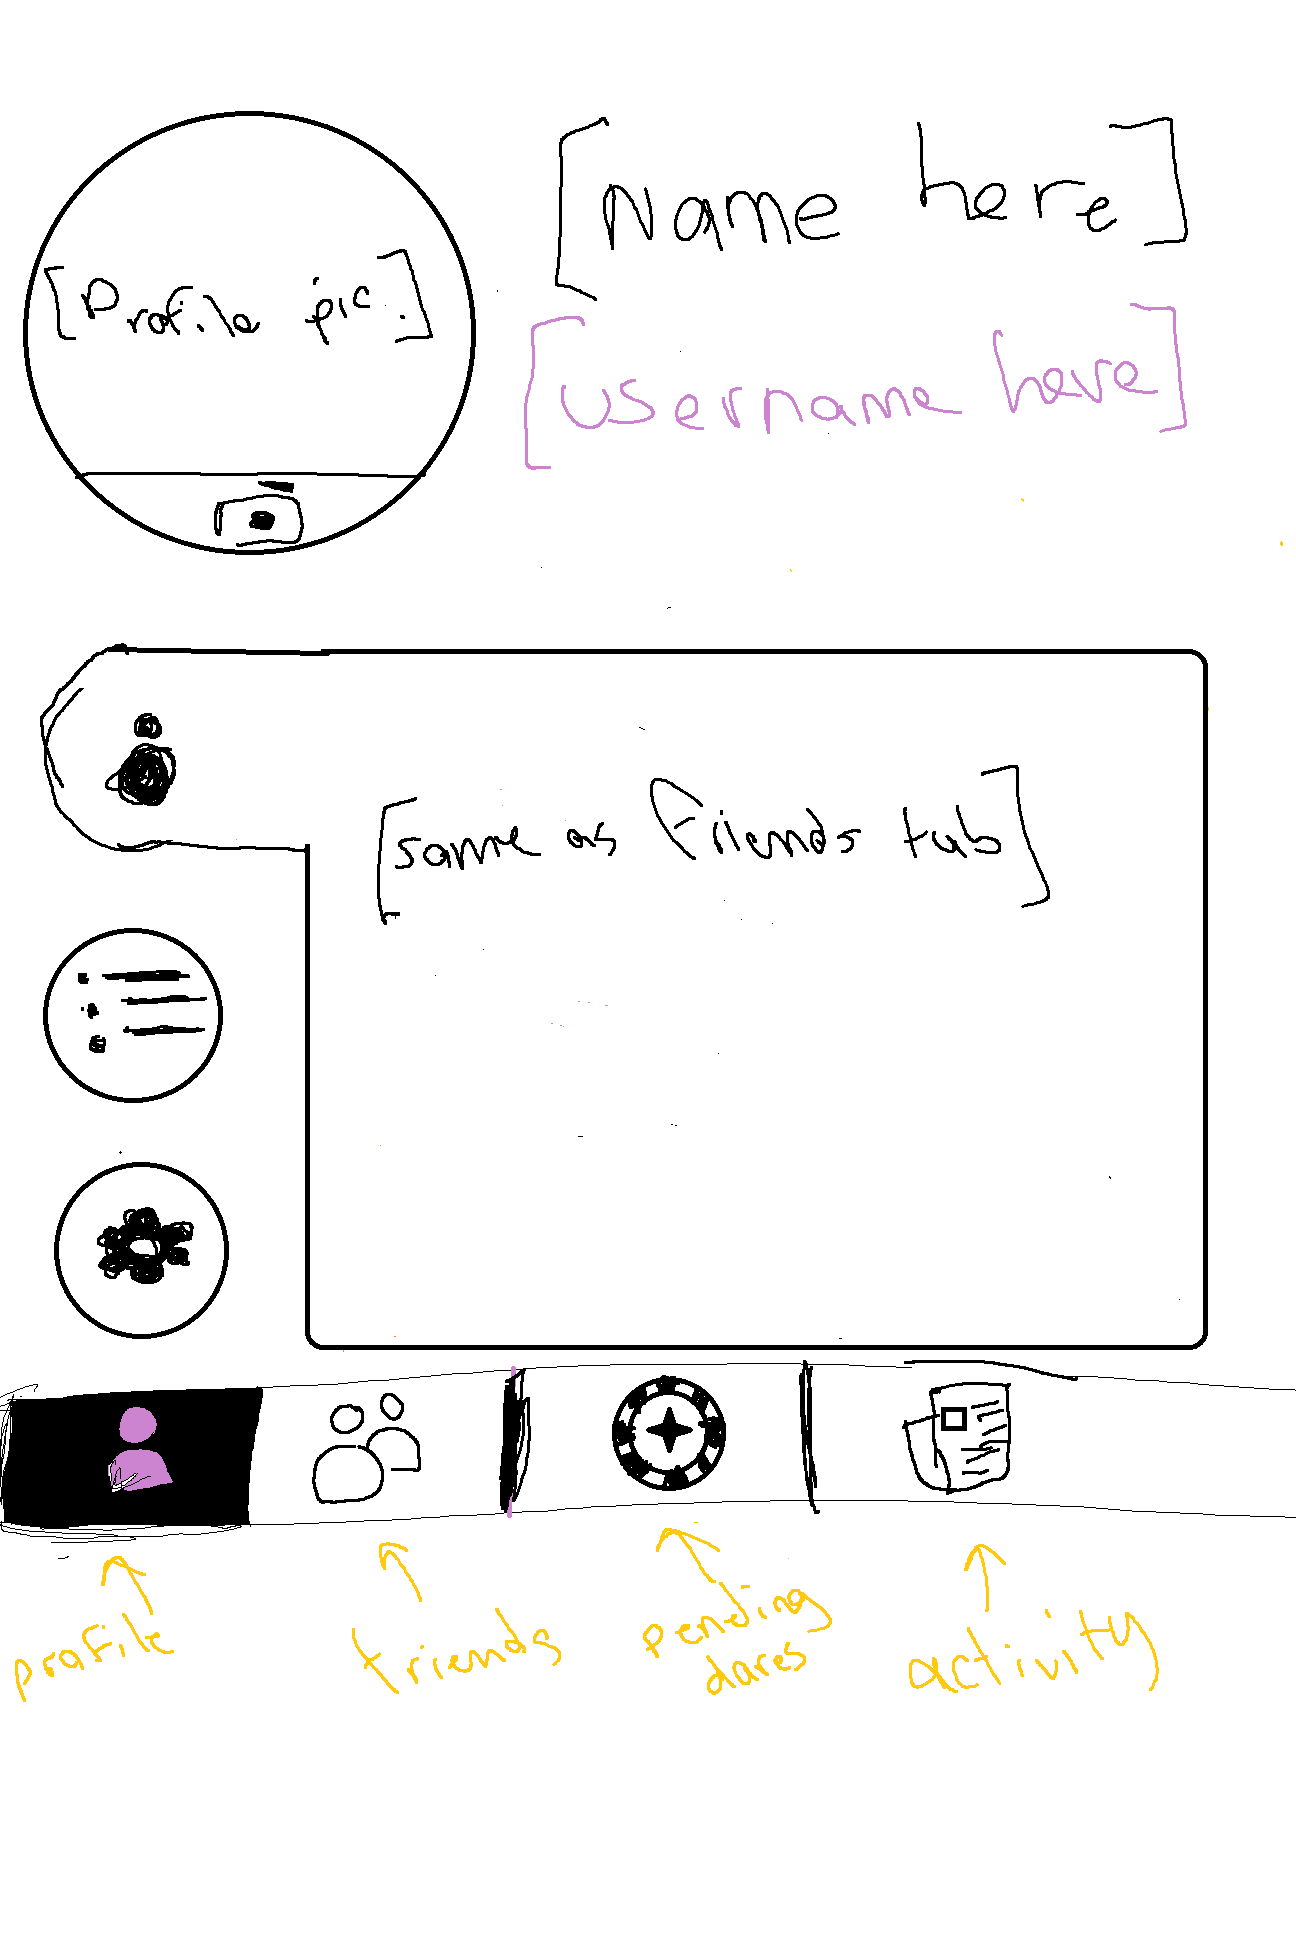 [Name here]
[Profile pic.]
[username here]
[same as friends tab]
profile
friends
pending
dares
activity